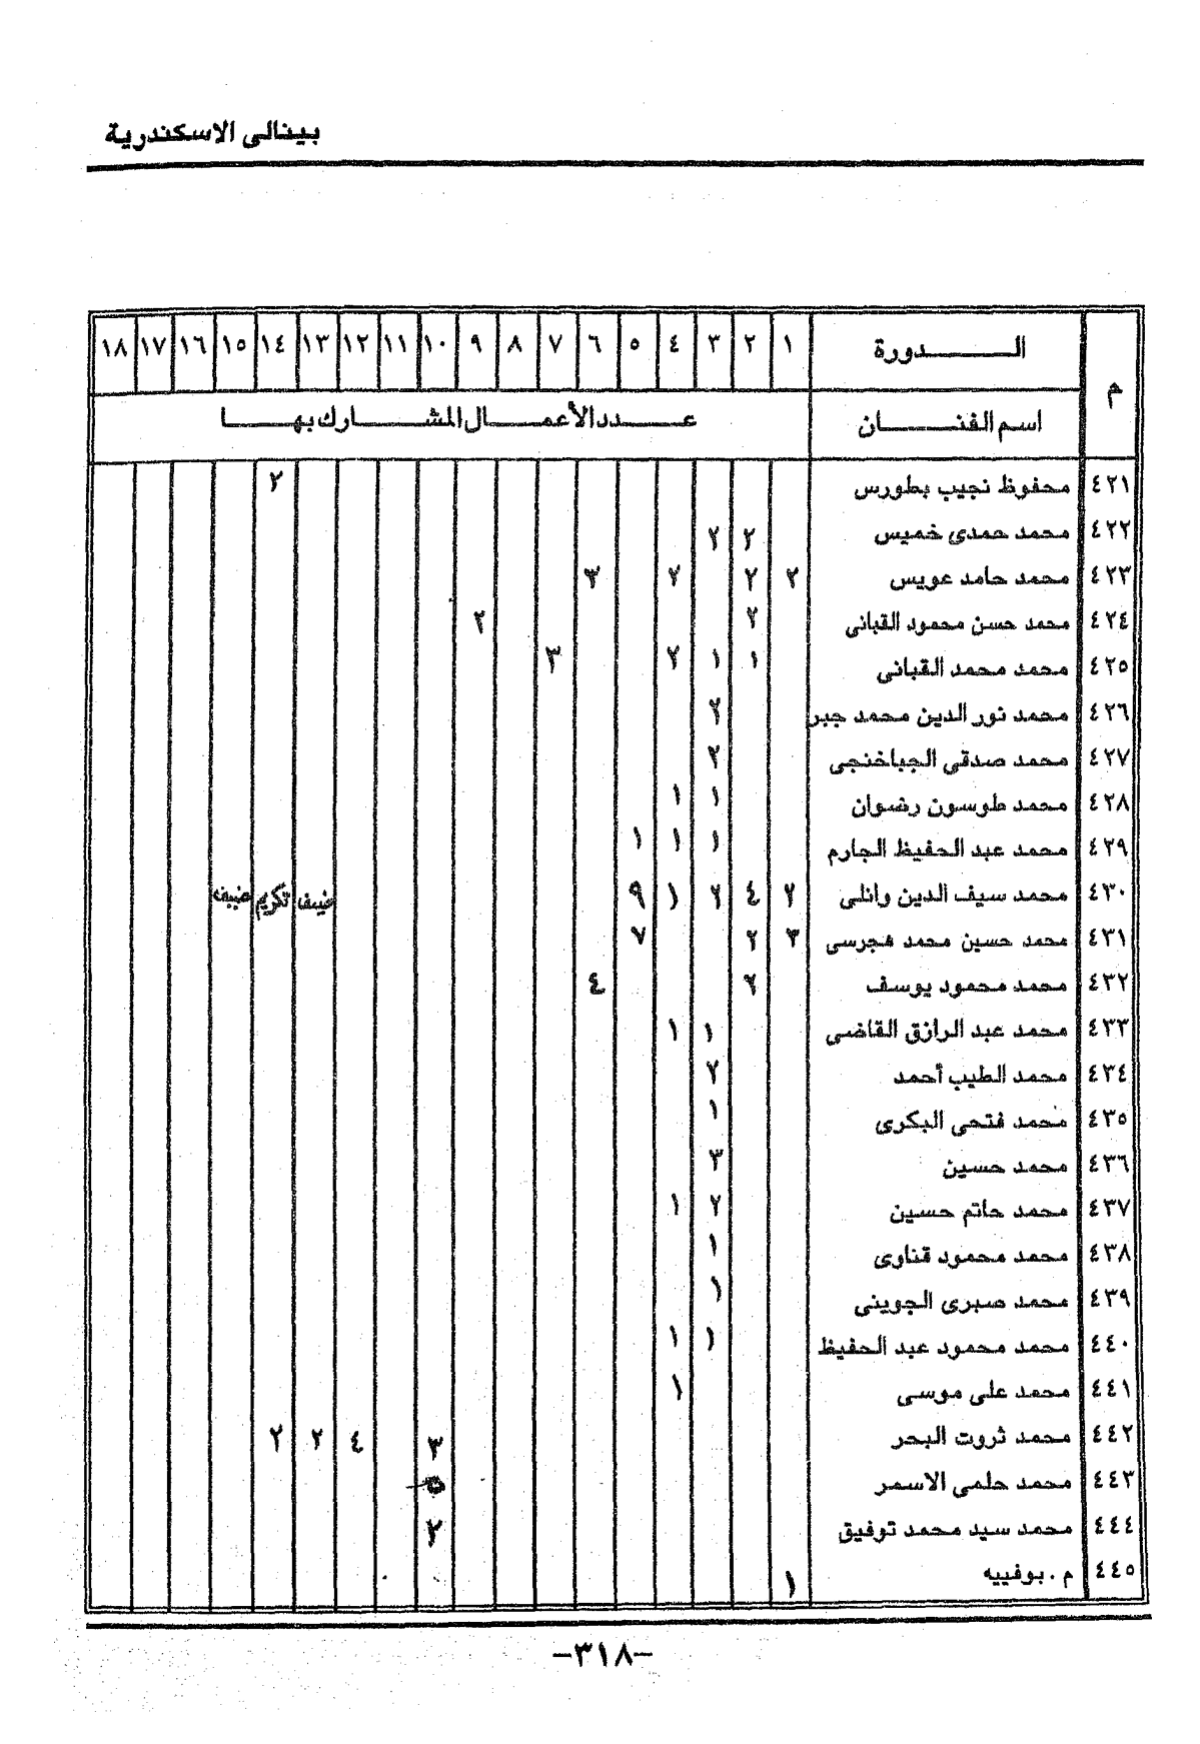 بينالى الاسكندرية
م الـــدورة ١ ٢ ٣ ٤ ٥ ٦ ٧ ٨ ٩ ١٠ ١١ ١٢ ١٣ ١٤ ١٥ ١٦ ١٧ ١٨
اسم الفنـــان عـــدد الأعمـــال المشـــارك بهـــا
٤٢١ محفوظ نجيب بطورس ٢
٤٢٢ محمد حمدى خميس ٢ ٢
٤٢٣ محمد حامد عويس ٢ ٢ ٢ ٣
٤٢٤ محمد حسن محمود القبانى ٢ ٢
٤٢٥ محمد محمد القبانى ١ ١ ٢ ٣
٤٢٦ محمد نور الدين محمد جبر ٢
٤٢٧ محمد صدقى الجباخنجى ٢
٤٢٨ محمد طوسون رضوان ١ ١
٤٢٩ محمد عبد الحفيظ الجارم ١ ١ ١
٤٣٠ محمد سيف الدين وانلى ٢ ٤ ٢ ١ ٩ ضيف تكريم ضيف
٤٣١ محمد حسين محمد هجرسى ٣ ٢ ٧
٤٣٢ محمد محمود يوسف ٢ ٤
٤٣٣ محمد عبد الرازق القاضى ١ ١
٤٣٤ محمد الطيب أحمد ٢
٤٣٥ محمد فتحى البكرى ١
٤٣٦ محمد حسين ٣
٤٣٧ محمد حاتم حسين ٢ ١
٤٣٨ محمد محمود قناوى ١
٤٣٩ محمد صبرى الجوينى ١
٤٤٠ محمد محمود عبد الحفيظ ١ ١
٤٤١ محمد على موسى ١
٤٤٢ محمد ثروت البحر ٣ ٤ ٢ ٢
٤٤٣ محمد حلمى الاسمر ٥
٤٤٤ محمد سيد محمد توفيق ٢
٤٤٥ م . بوفييه ١
–٣١٨–